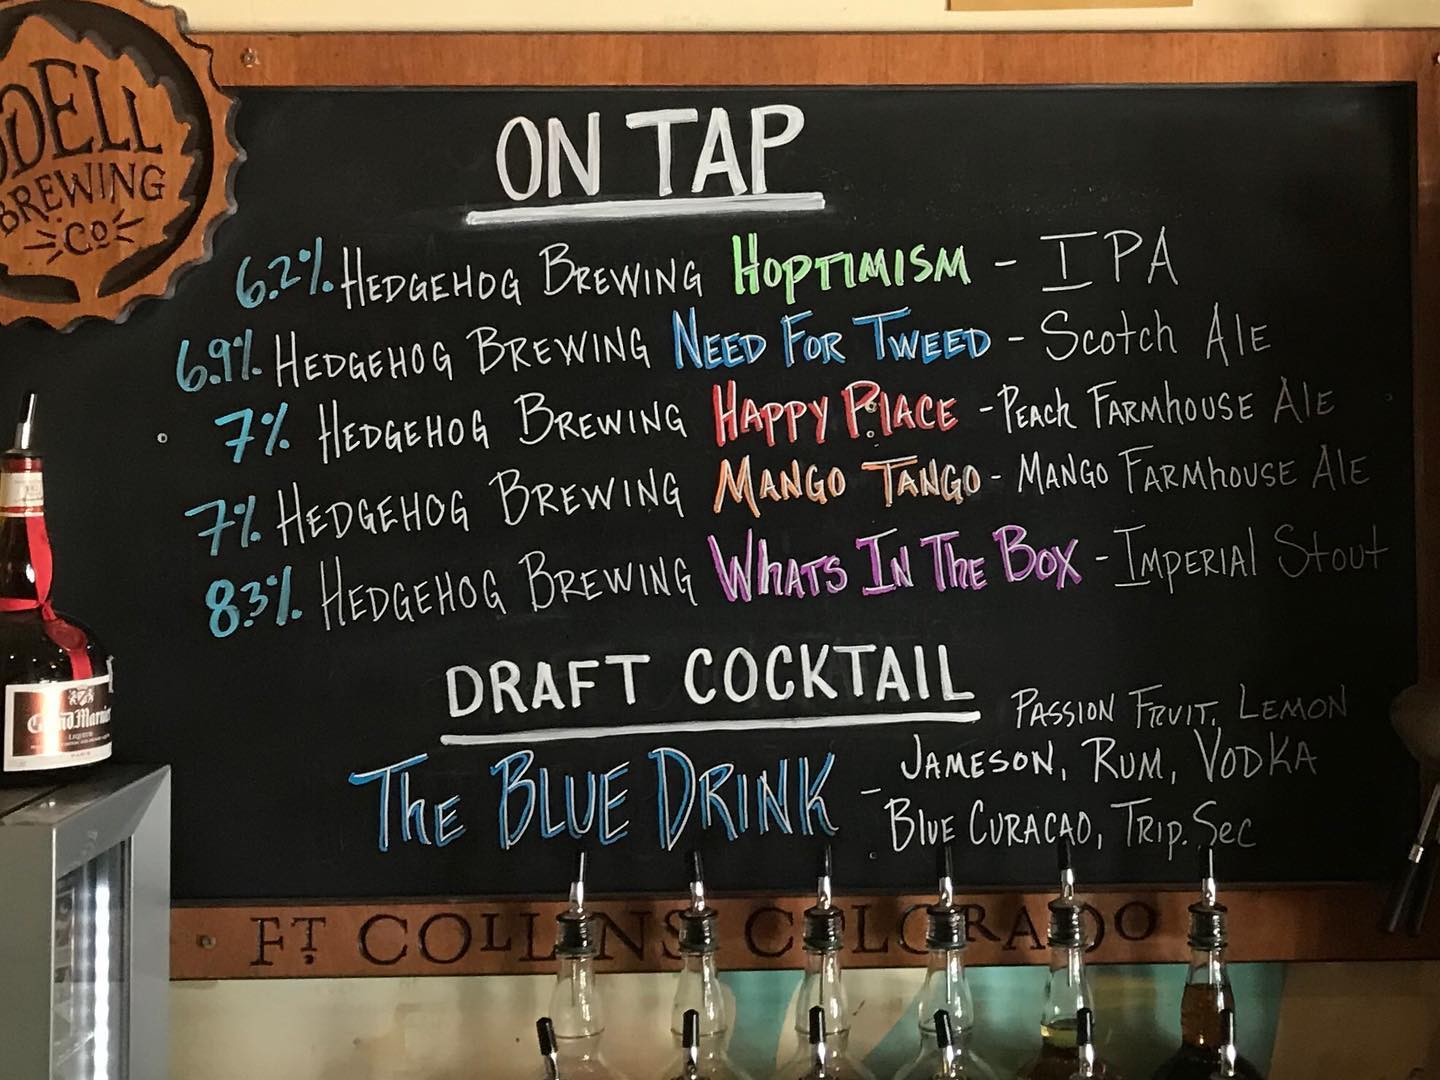 ODELL
BREWING
Co
ON TAP
6.2% HEDGEHOG BREWING HOPTIMISM - IPA
6.9% HEDGEHOG BREWING NEED FOR TWEED - Scotch Ale
7% HEDGEHOG BREWING HAPPY PLACE - Peach FARMhOUSE Ale
7% HEDGEHOG BREWING MANGO TANGO - MANGO FARMhOUSE Ale
8.3% HEDGEHOG BREWING WhATS IN The BOX - IMPERIAL Stout
DRAFT COCKTAIL
The BLUE DRINK - PASSION FRUIT, LEMON
JAMESON, RUM, VODKA
Blue CURACAO, TRIP. Sec
FT. COLLINS COLORADO
Grand Marnier
LIQUEUR